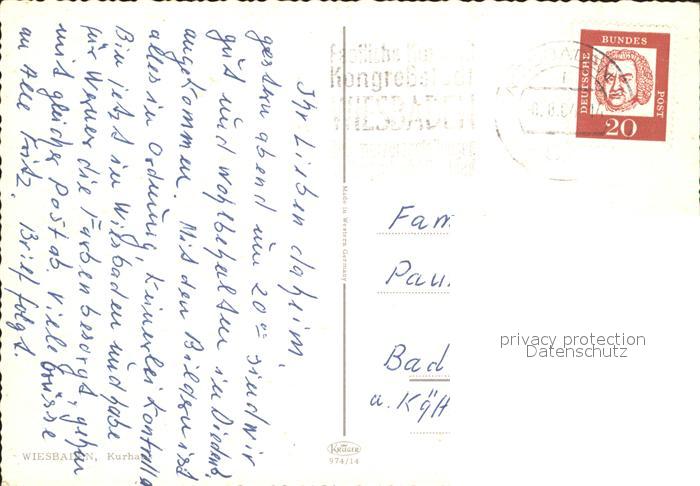 Ihr Lieben daheim.
gestern abend um 20 00 sind wir
gut und wohlbehalten in
angekommen. Mit den Bildern ist
alles in Ordnung keinerlei Kontrolle
Bin jetzt in Wiesbaden und habe
für Werner die Farben besorgt, gehen
mit gleicher Post ab. Viele Grüsse
an Alle Fritz. Brief folgt.
WIESBADEN, Kurha
Made in Western Germany
KRÜGER
974/14
Kongreßstadt
WIESBADEN
DEUTSCHE BUNDES POST
20
Fam
Pau
Bad
a. Kgh
privacy protection
Datenschutz